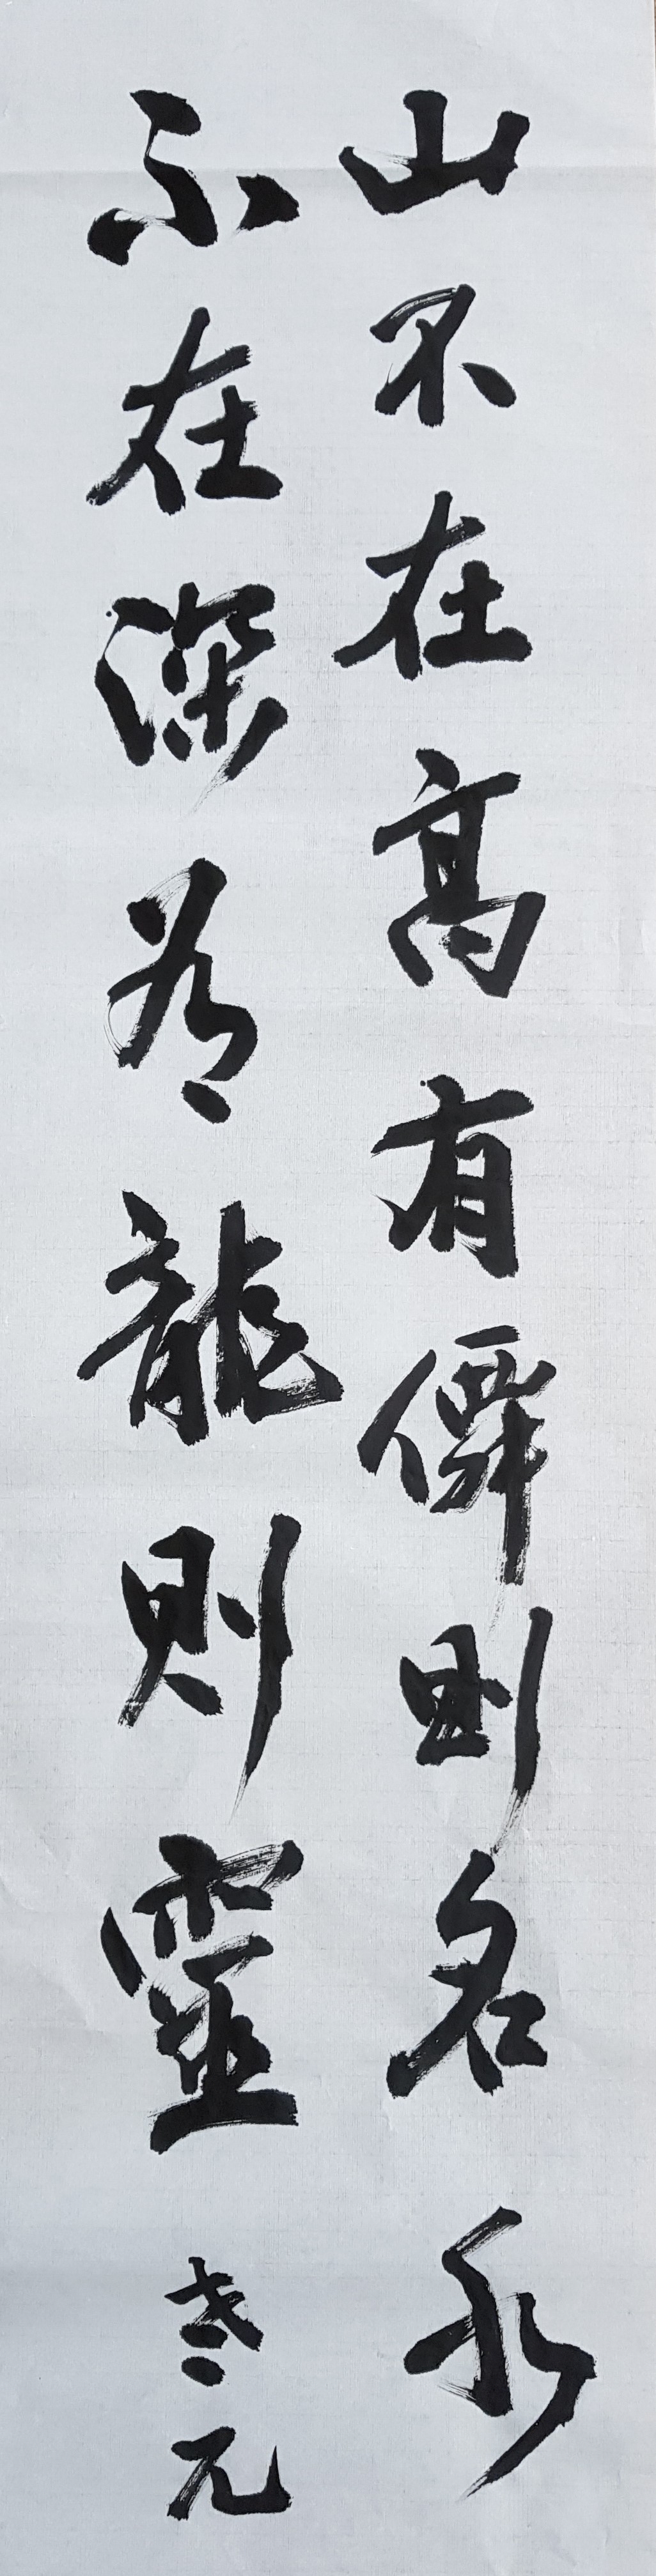 山不在高有僊則名水
不在深有龍則靈